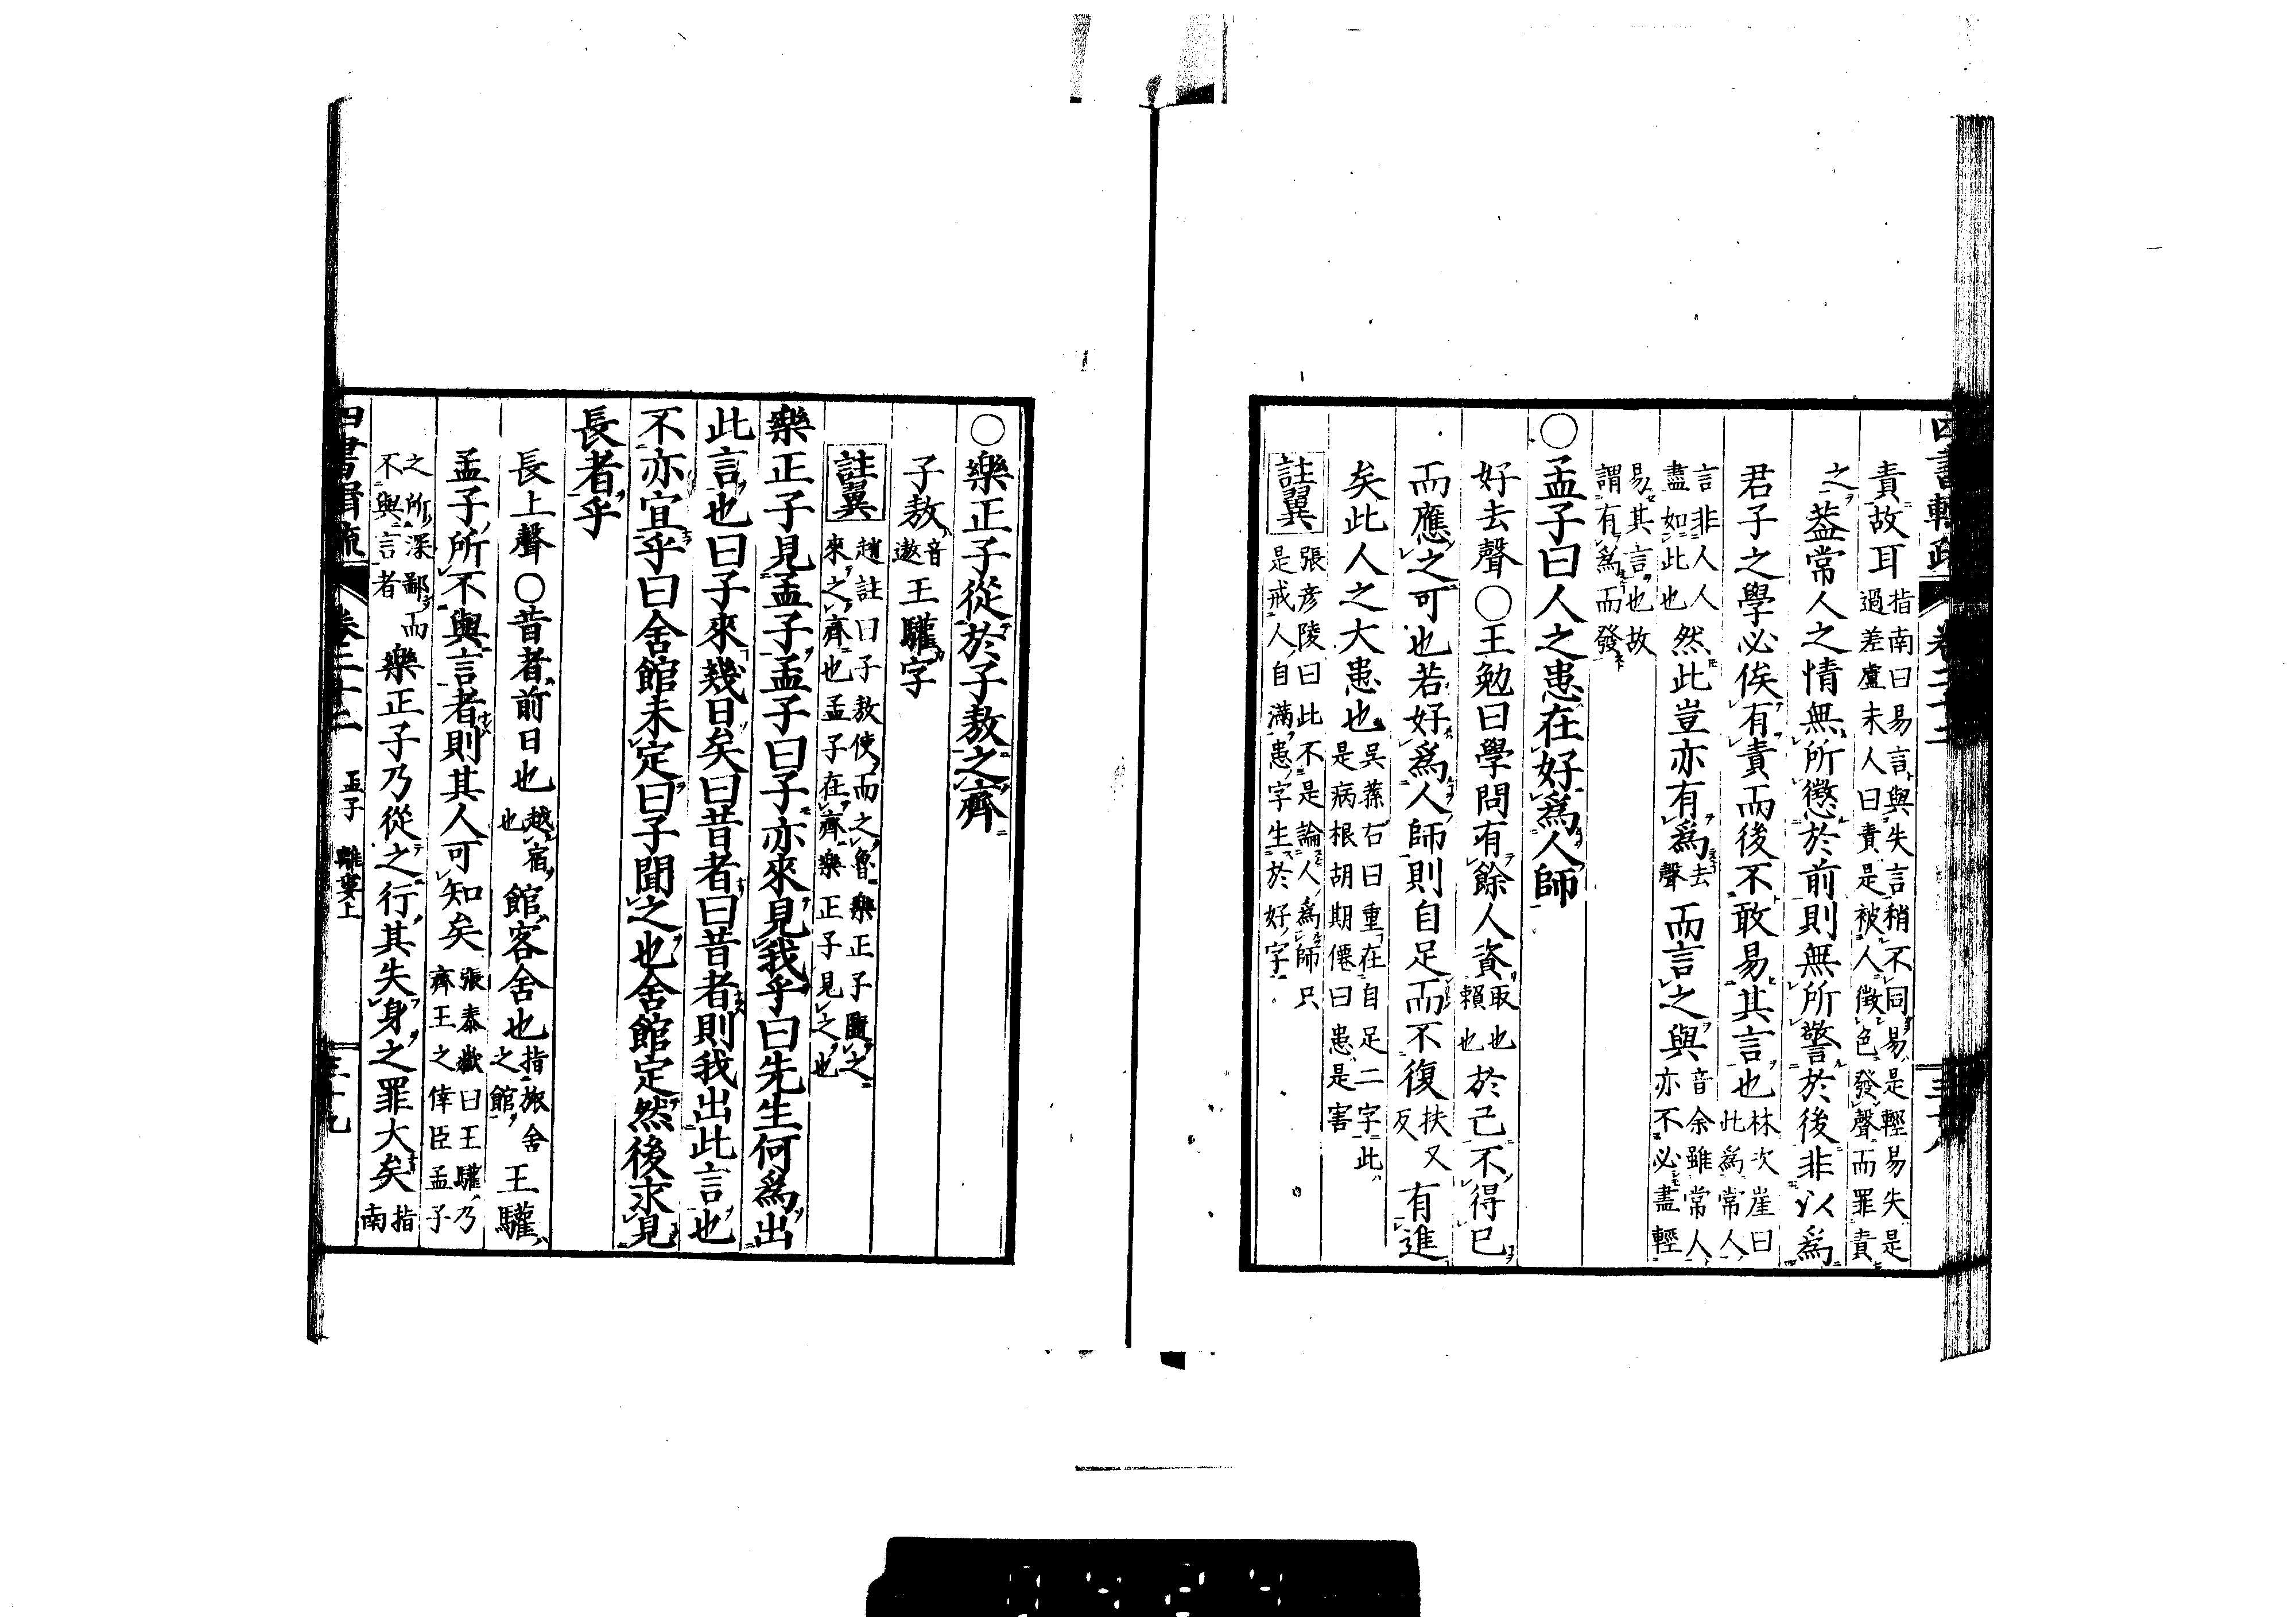 責故耳指南曰易言與失言稍不同易是輕易失是
過差盧未人曰責是被人徵色發聲而罪責
之葢常人之情無所懲於前則無所警於後非以爲
君子之學必俟有責而後不敢易其言也林次崖曰
此爲常人
言非人人
盡如此也然此豈亦有爲去聲而言之與音余雖常人
亦不必盡輕
易其言也故
謂有爲而發
○孟子曰人之患在好爲人師
好去聲○王勉曰學問有餘人資取也
賴也於己不得已
而應之可也若好爲人師則自足而不復扶又
反有進
矣此人之大患也吳蓀右曰重在自足二字此
是病根胡期僊曰患是害
註翼張彦陵曰此不是論人爲師只
是戒人自滿患字生於好字
○樂正子從於子敖之齊
子敖音
遨王驩字
註翼趙註曰子敖使而之魯樂正子隨之
來之齊也孟子在齊樂正子見之也
樂正子見孟子孟子曰子亦來見我乎曰先生何爲出
此言也曰子來幾日矣曰昔者曰昔者則我出此言也
不亦宜乎曰舍館未定曰子聞之也舍館定然後求見
長者乎
長上聲○昔者前日也越宿
也館客舍也指旅舍
之館王驩
孟子所不與言者則其人可知矣張泰嶽曰王驩乃
齊王之倖臣孟子
之所深鄙而
不與言者樂正子乃從之行其失身之罪大矣指
南
卷二十二 孟子 離婁上 三十九